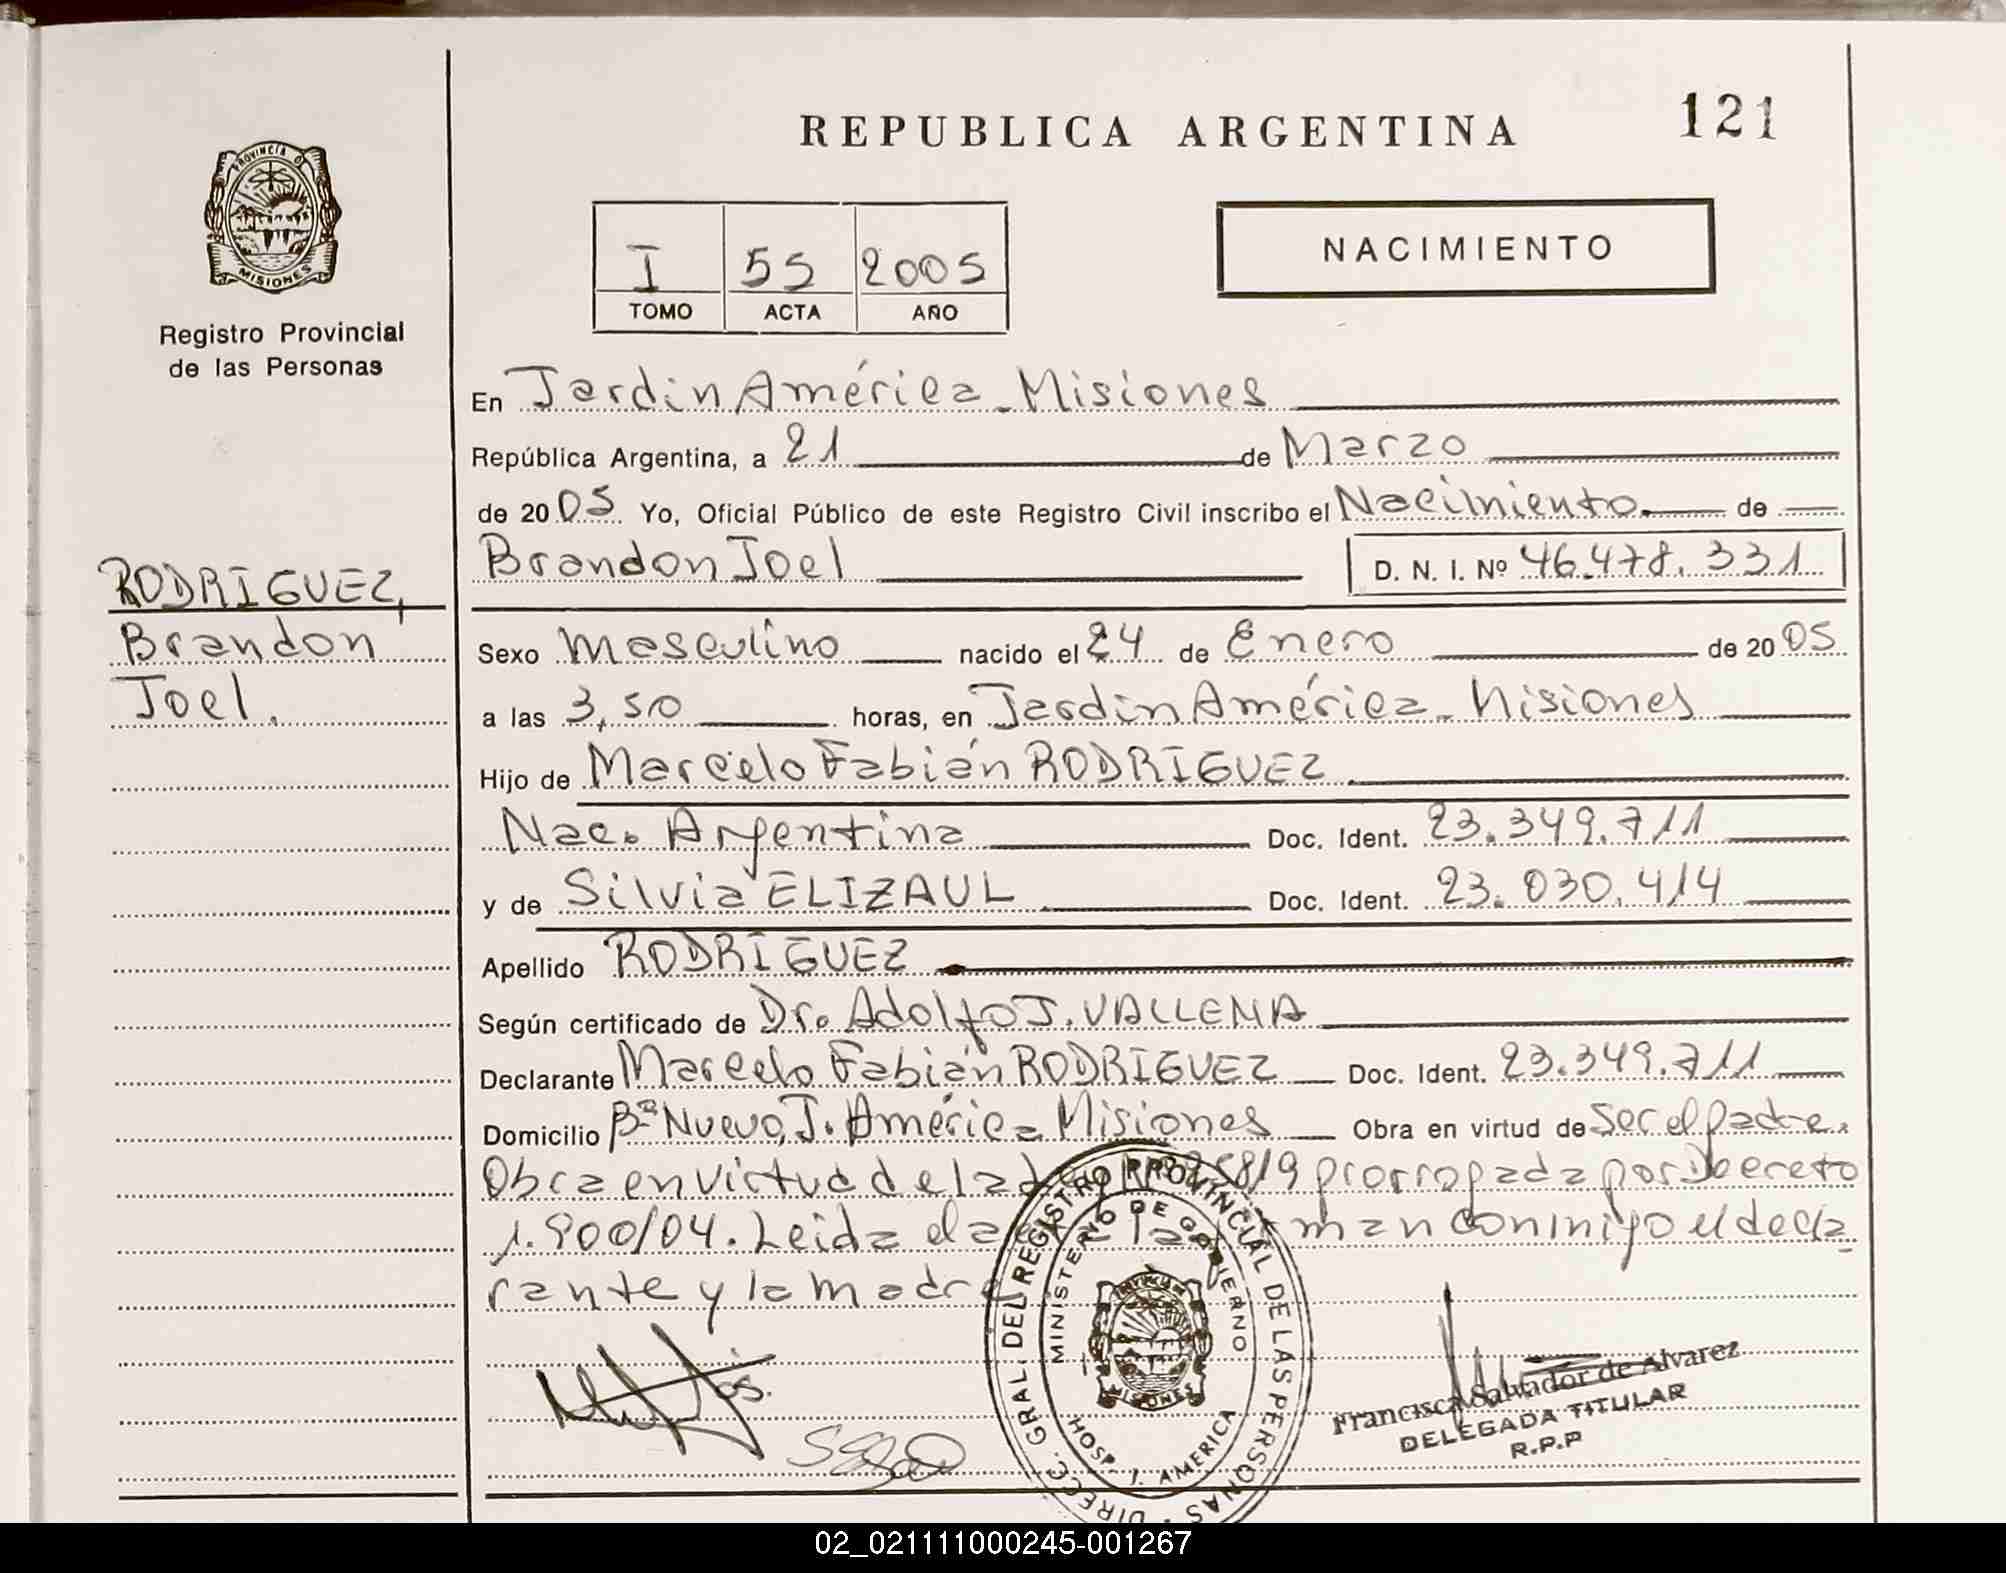 REPUBLICA ARGENTINA
121
PROVINCIA D
MISIONES
Registro Provincial
de las Personas
I 55 2005
TOMO ACTA AÑO
NACIMIENTO
En Jardin América - Misiones
República Argentina, a 21 de Marzo
de 2005 Yo, Oficial Público de este Registro Civil inscribo el Nacimiento de
Brandon Joel D. N. I. Nº 46.478.331
RODRIGUEZ,
Brandon
Joel.
Sexo Masculino nacido el 24 de Enero de 2005
a las 3,50 horas, en Jardin América - Misiones
Hijo de Marcelo Fabián RODRIGUEZ
Nac. Argentina Doc. Ident. 23.349.711
y de Silvia ELIZAUL Doc. Ident. 23.030.414
Apellido RODRIGUEZ
Según certificado de Dr. Adolfo J. VALLEMA
Declarante Marcelo Fabián RODRIGUEZ Doc. Ident. 23.349.711
Domicilio Bº Nuevo, J. América Misiones Obra en virtud de Ser el padre.
Obra en virtud de la 25819 prorrogada por Decreto
1.900/04. Leida el man conmigo el decla
rante y la madre
DIREC. GRAL. DEL REGISTRO PROVINCIAL DE LAS PERSONAS
MINISTERIO DE GOBIERNO
HOSP. J. AMERICA
MISIONES
Francisca Salvador de Alvarez
DELEGADA TITULAR
R.P.P
02_021111000245-001267